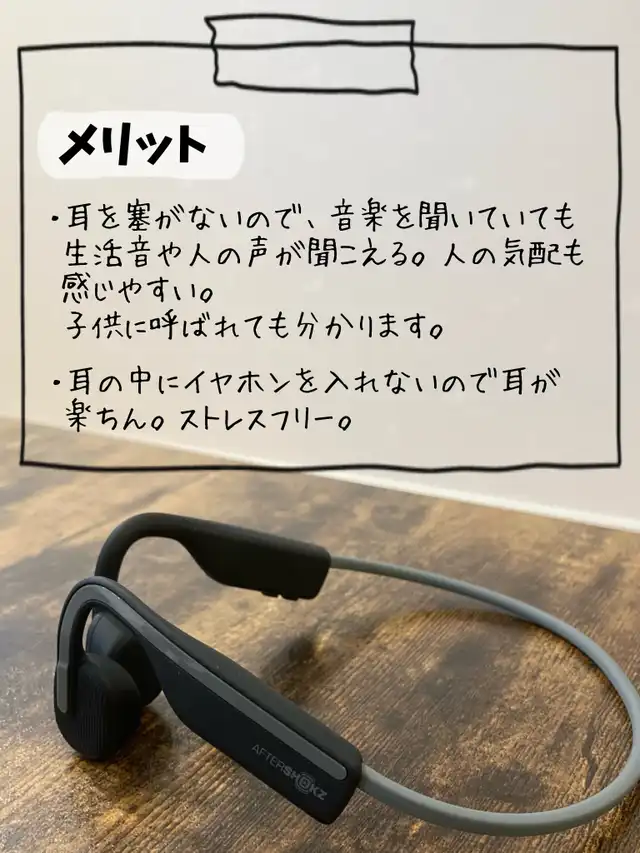 メリット
・耳を塞がないので、音楽を聞いていても
生活音や人の声が聞こえる。人の気配も
感じやすい。
子供に呼ばれても分かります。
・耳の中にイヤホンを入れないので耳が
楽ちん。ストレスフリー。
AFTERSHOKZ